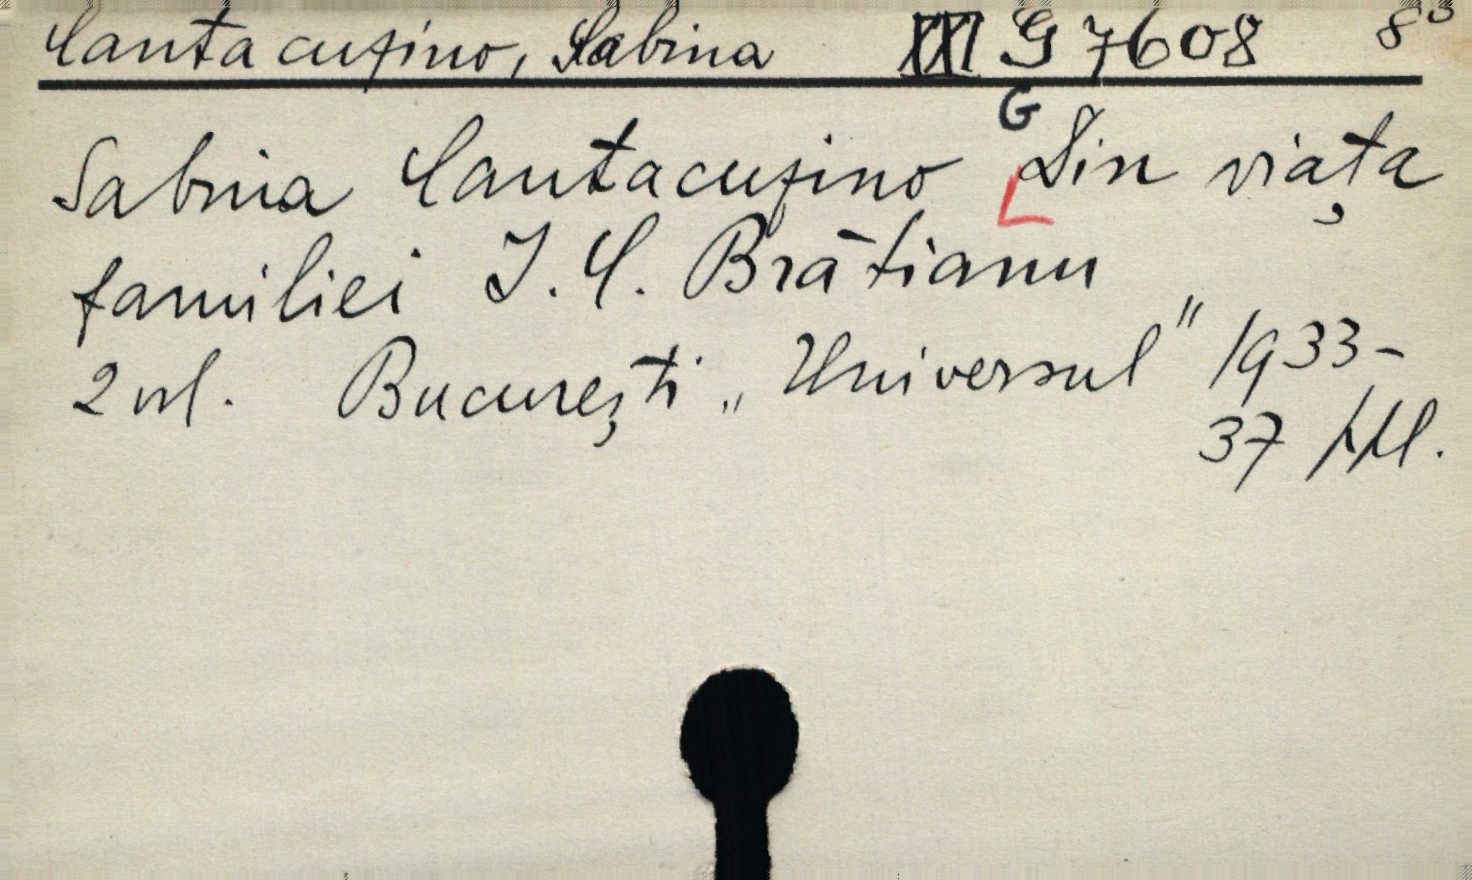 Cantacuzino, Sabina XXI G 7608 8°
G
Sabina Cantacuzino Din viața
familiei I. C. Brătianu
2 vol. București „Universul" 1933-
37